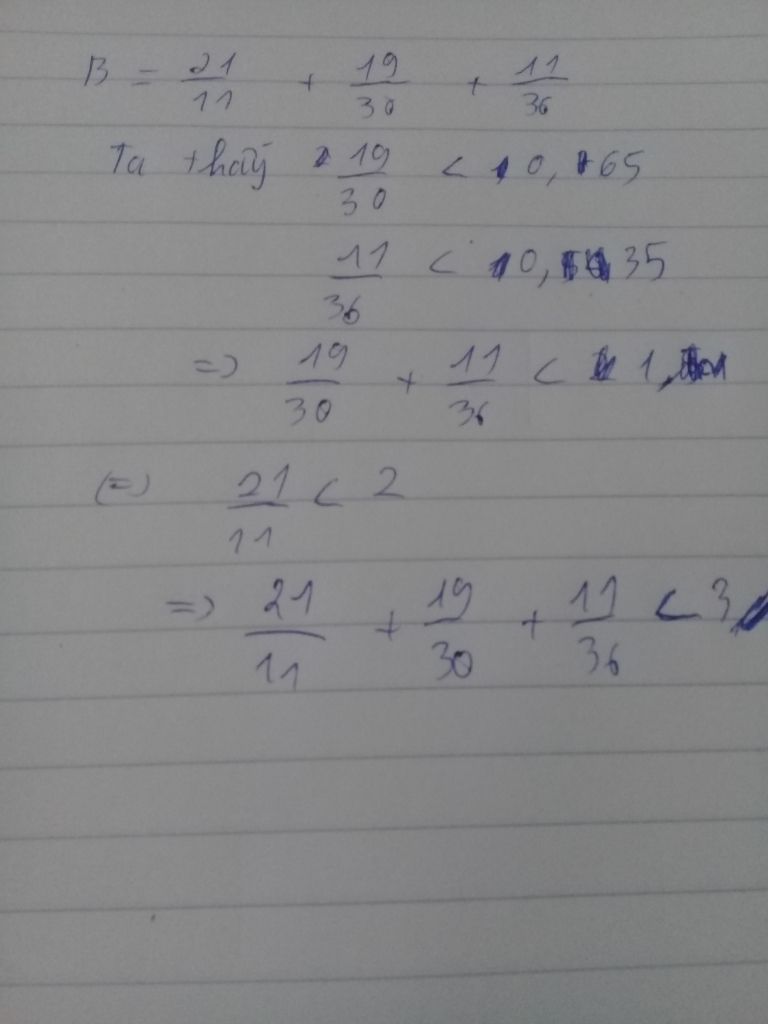 B = 21/11 + 19/30 + 11/36
Ta thấy 19/30 < 0,65
11/36 < 0,35
=> 19/30 + 11/36 < 1
(=) 21/11 < 2
=> 21/11 + 19/30 + 11/36 < 3